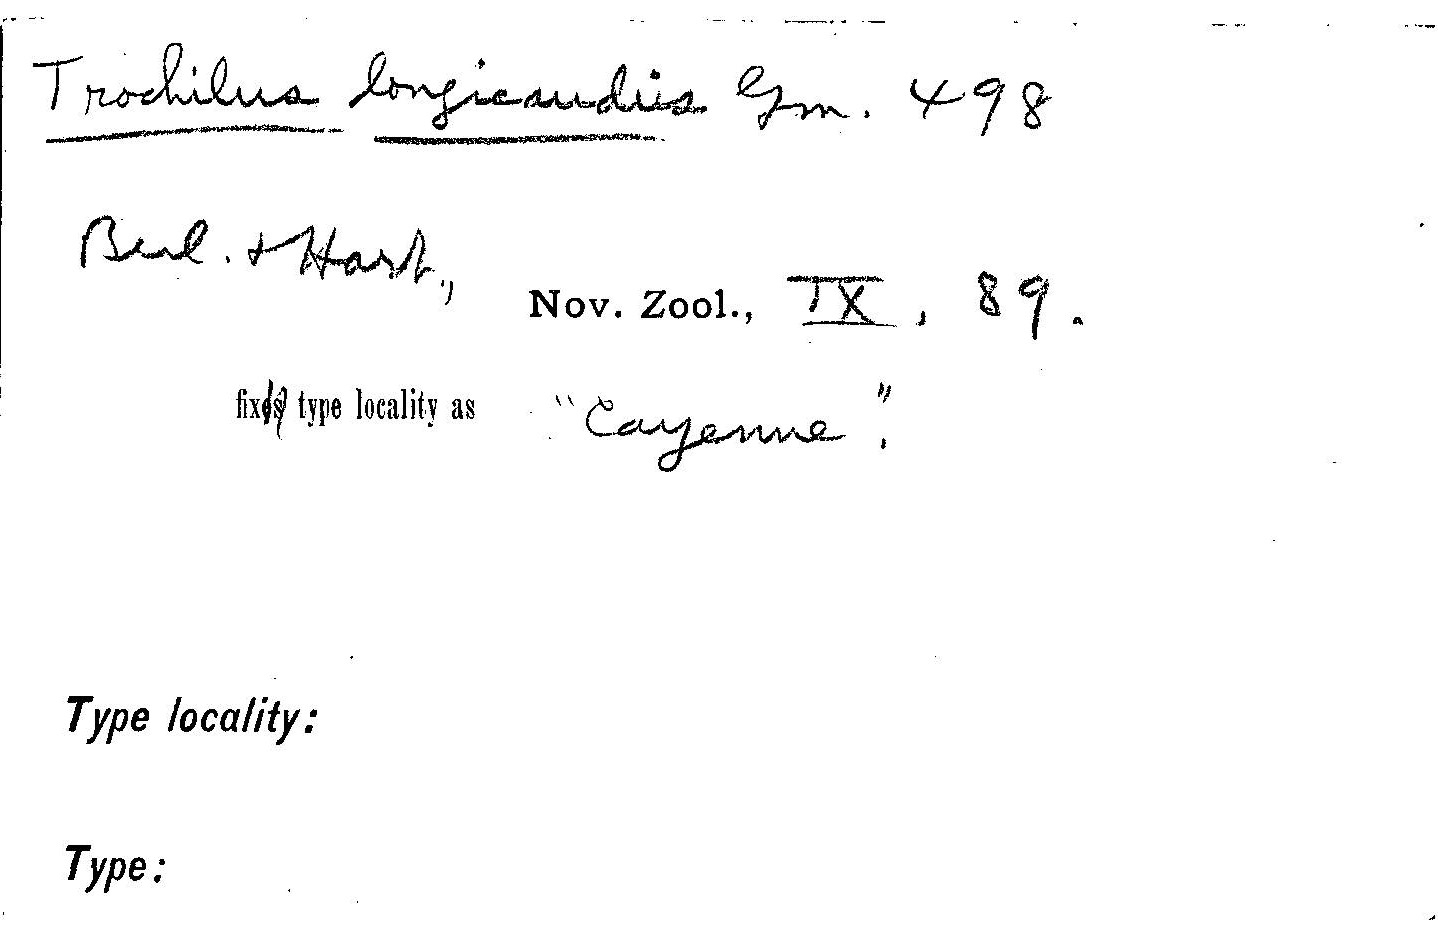 Trochilus longicaudus Gm. 498
Berl. + Hart.,
Nov. Zool., IX, 89.
fix type locality as "Cayenne".
Type locality:
Type: